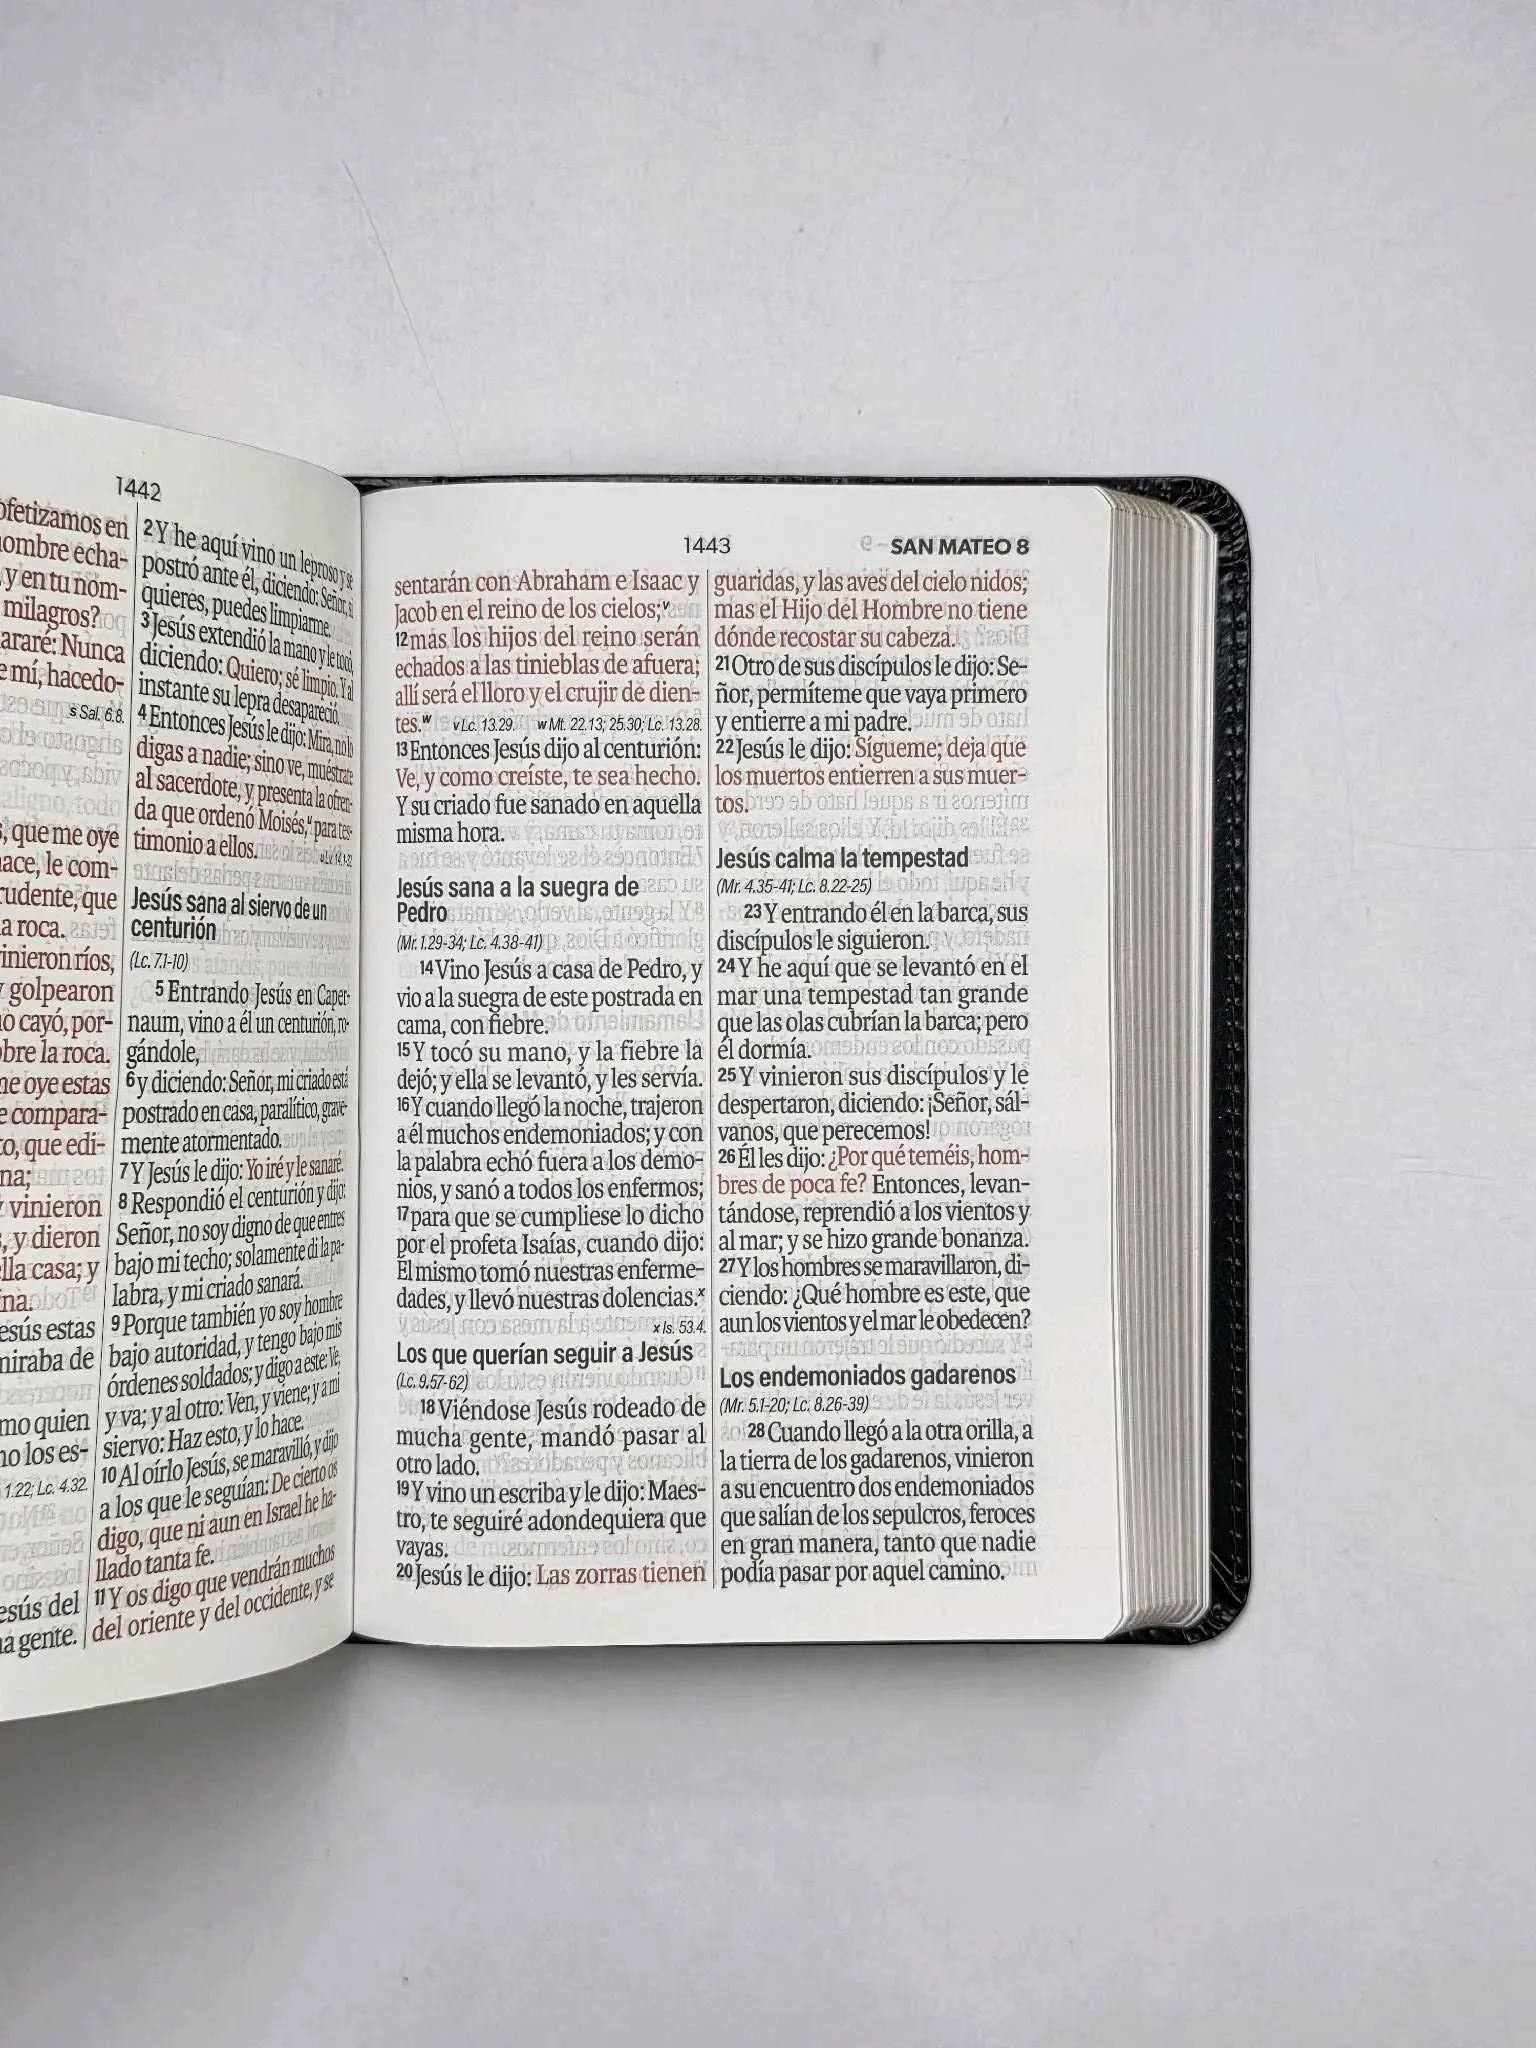 1442
ofetizamos en
nombre echa-
y en tu nom-
milagros?
araré: Nunca
e mí, hacedo-
s Sal. 6.8.
s, que me oye
hace, le com-
rudente, que
la roca.
vinieron ríos,
y golpearon
no cayó, por-
obre la roca.
me oye estas
e compara-
to, que edi-
na;
y vinieron
s, y dieron
lla casa; y
ina.
esús estas
miraba de
mo quien
no los es-
1.22; Lc. 4.32.
esús del
ha gente.
2 Y he aquí vino un leproso y se
postró ante él, diciendo: Señor, si
quieres, puedes limpiarme.
3 Jesús extendió la mano y le tocó,
diciendo: Quiero; sé limpio. Y al
instante su lepra desapareció.
4 Entonces Jesús le dijo: Mira, no lo
digas a nadie; sino ve, muéstrate
al sacerdote, y presenta la ofren-
da que ordenó Moisés,u para tes-
timonio a ellos. u Lv. 14.1-32.
Jesús sana al siervo de un
centurión
(Lc. 7.1-10)
5 Entrando Jesús en Caper-
naum, vino a él un centurión, ro-
gándole,
6 y diciendo: Señor, mi criado está
postrado en casa, paralítico, grave-
mente atormentado.
7 Y Jesús le dijo: Yo iré y le sanaré.
8 Respondió el centurión y dijo:
Señor, no soy digno de que entres
bajo mi techo; solamente di la pa-
labra, y mi criado sanará.
9 Porque también yo soy hombre
bajo autoridad, y tengo bajo mis
órdenes soldados; y digo a este: Ve,
y va; y al otro: Ven, y viene; y a mi
siervo: Haz esto, y lo hace.
10 Al oírlo Jesús, se maravilló, y dijo
a los que le seguían: De cierto os
digo, que ni aun en Israel he ha-
llado tanta fe.
11 Y os digo que vendrán muchos
del oriente y del occidente, y se
1443 SAN MATEO 8
sentarán con Abraham e Isaac y
Jacob en el reino de los cielos;v
12 mas los hijos del reino serán
echados a las tinieblas de afuera;
allí será el lloro y el crujir de dien-
tes.w v Lc. 13.29. w Mt. 22.13; 25.30; Lc. 13.28.
13 Entonces Jesús dijo al centurión:
Ve, y como creíste, te sea hecho.
Y su criado fue sanado en aquella
misma hora.
Jesús sana a la suegra de
Pedro
(Mr. 1.29-34; Lc. 4.38-41)
14 Vino Jesús a casa de Pedro, y
vio a la suegra de este postrada en
cama, con fiebre.
15 Y tocó su mano, y la fiebre la
dejó; y ella se levantó, y les servía.
16 Y cuando llegó la noche, trajeron
a él muchos endemoniados; y con
la palabra echó fuera a los demo-
nios, y sanó a todos los enfermos;
17 para que se cumpliese lo dicho
por el profeta Isaías, cuando dijo:
Él mismo tomó nuestras enferme-
dades, y llevó nuestras dolencias.x
x Is. 53.4.
Los que querían seguir a Jesús
(Lc. 9.57-62)
18 Viéndose Jesús rodeado de
mucha gente, mandó pasar al
otro lado.
19 Y vino un escriba y le dijo: Maes-
tro, te seguiré adondequiera que
vayas.
20 Jesús le dijo: Las zorras tienen
guaridas, y las aves del cielo nidos;
mas el Hijo del Hombre no tiene
dónde recostar su cabeza.
21 Otro de sus discípulos le dijo: Se-
ñor, permíteme que vaya primero
y entierre a mi padre.
22 Jesús le dijo: Sígueme; deja que
los muertos entierren a sus muer-
tos.
Jesús calma la tempestad
(Mr. 4.35-41; Lc. 8.22-25)
23 Y entrando él en la barca, sus
discípulos le siguieron.
24 Y he aquí que se levantó en el
mar una tempestad tan grande
que las olas cubrían la barca; pero
él dormía.
25 Y vinieron sus discípulos y le
despertaron, diciendo: ¡Señor, sál-
vanos, que perecemos!
26 Él les dijo: ¿Por qué teméis, hom-
bres de poca fe? Entonces, levan-
tándose, reprendió a los vientos y
al mar; y se hizo grande bonanza.
27 Y los hombres se maravillaron, di-
ciendo: ¿Qué hombre es este, que
aun los vientos y el mar le obedecen?
Los endemoniados gadarenos
(Mr. 5.1-20; Lc. 8.26-39)
28 Cuando llegó a la otra orilla, a
la tierra de los gadarenos, vinieron
a su encuentro dos endemoniados
que salían de los sepulcros, feroces
en gran manera, tanto que nadie
podía pasar por aquel camino.